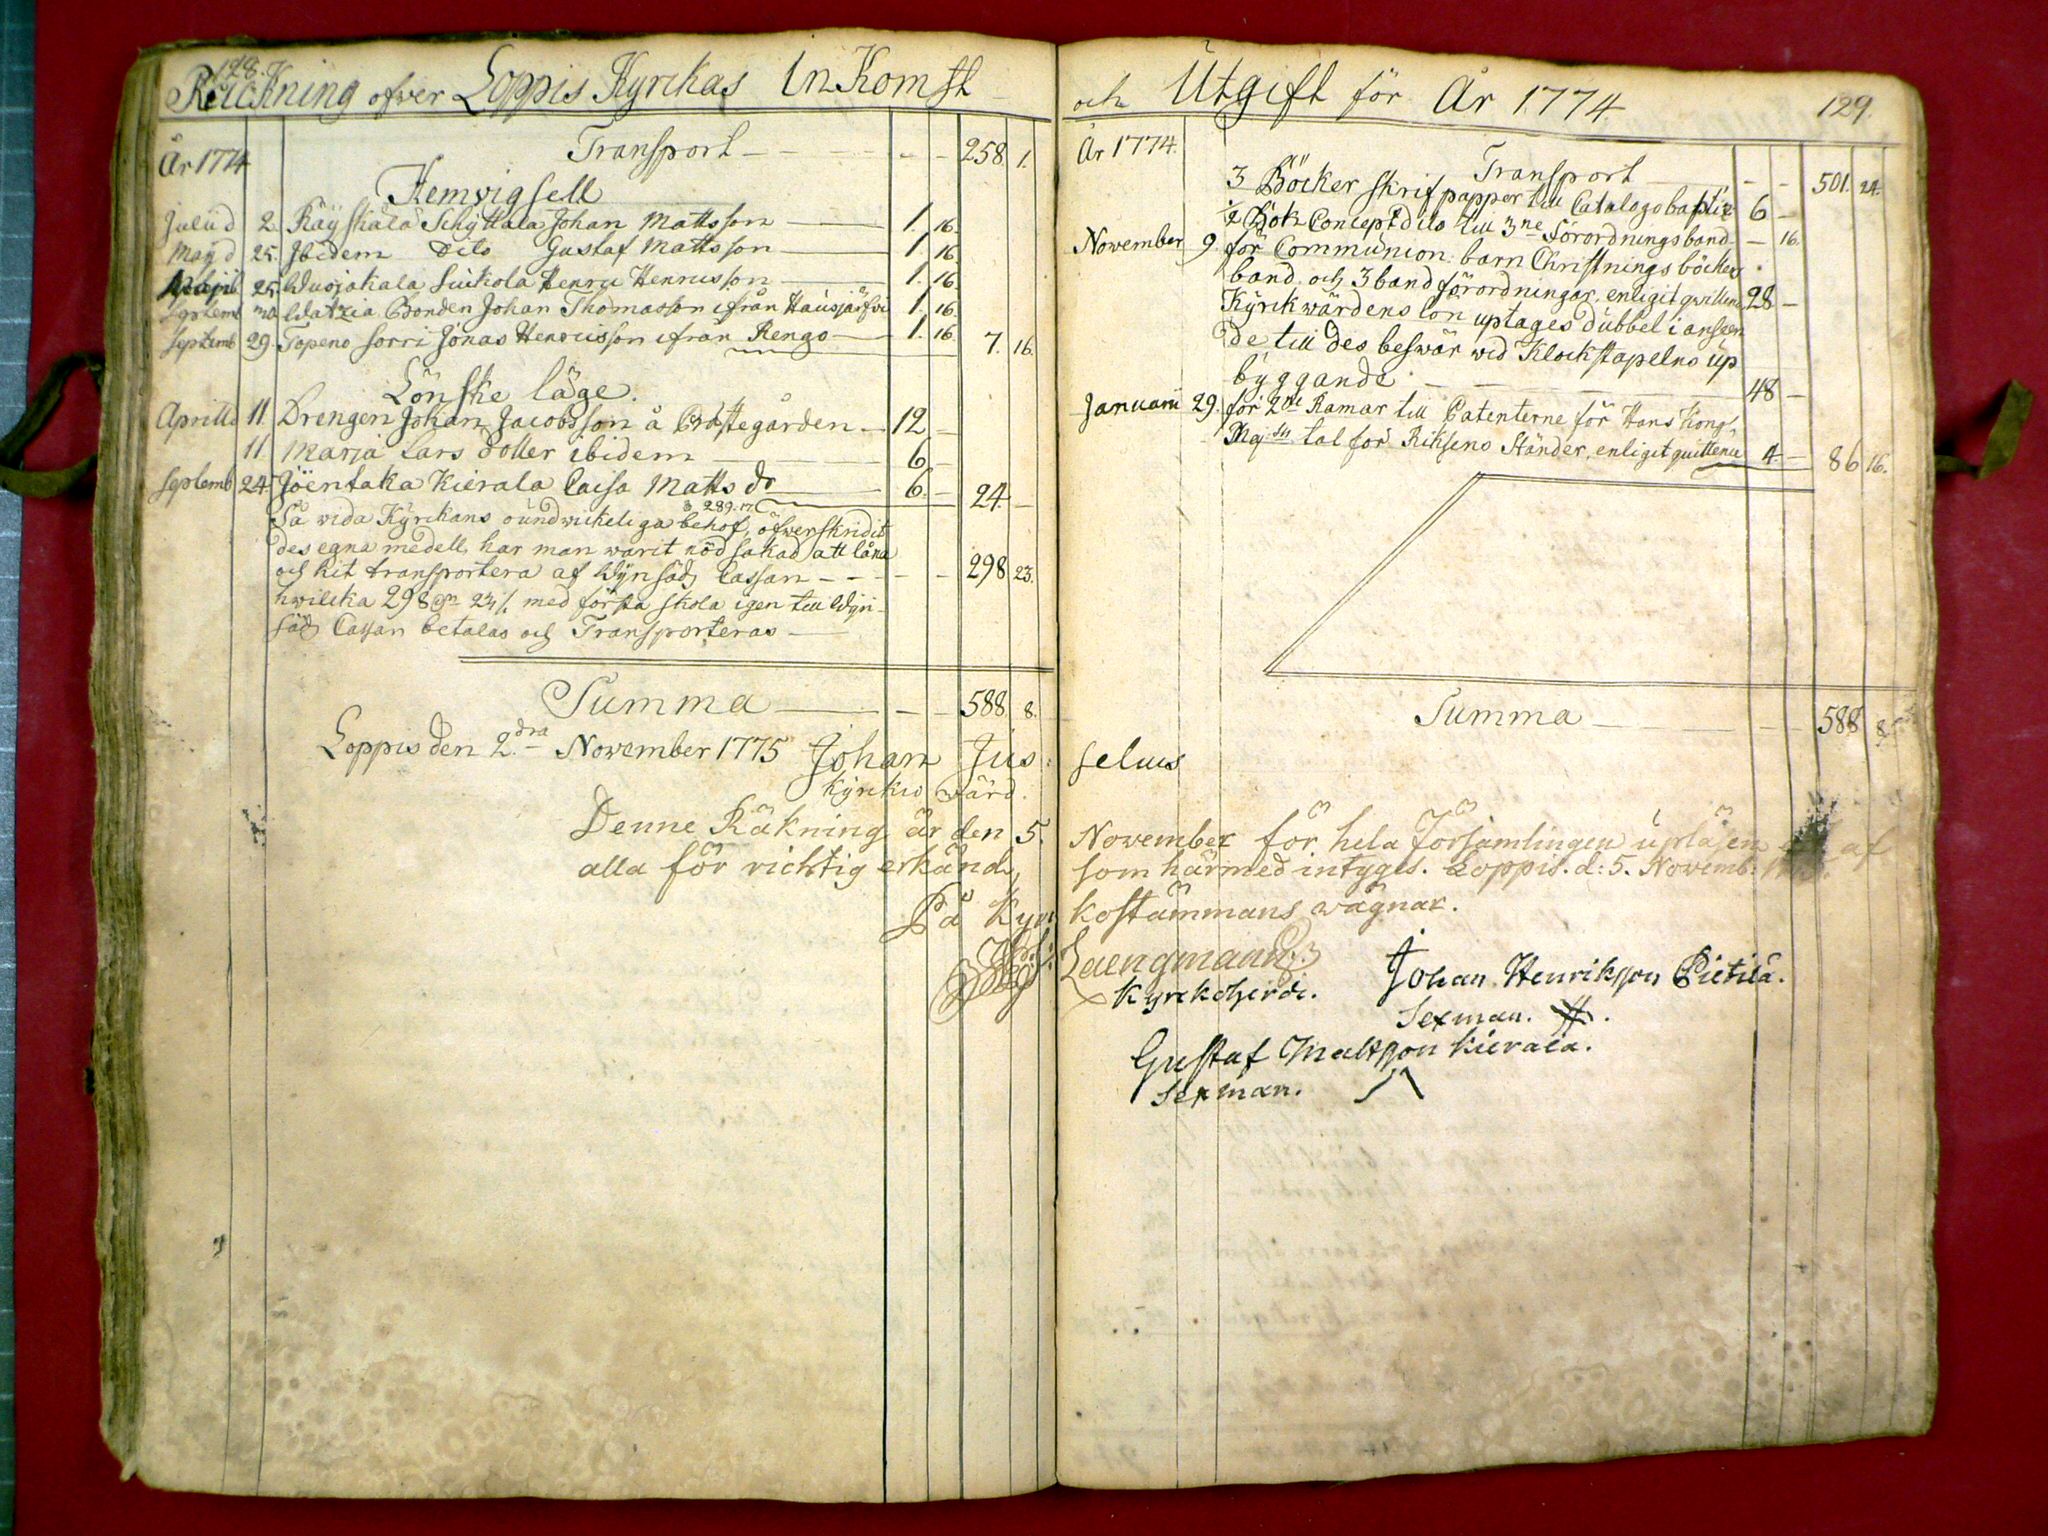 128.
Räckning ofwer Loppis Kyrckas InKomst
År 1774 Transport 258 1.
Hemvigsell
Julii d 2 Räyskälä Schyttälä Johan Mattsson 1. 16.
Maÿ d 25. Ibidem Dito Gustaf Mattsson 1 16.
25. Wuojakala Suikola Henric Henricsson 1. 16.
Septemb Watzia Bonden Johan Thomasson ifrån Hausjärfvi 1. 16.
Septemb 29. Topeno Sorri Jonas Henricsson ifrån Rengo 1. 16. 7. 16.
Lönske läge.
Aprillis 11. Drengen Johan Jacobsson å Prästegården 12
11. Maria Lars dotter ibidem 6
Septemb 24. Jöentaka Kierala Caisa Matts dr 6. 24.
289. 17.
Så vida Kÿrckans oundwickeliga behof, öfwerskridit
des egna medell, har man warit nödsakad att låna
och hit transportera af Wijnsäds Cassan 298 23.
hwilcka 298 23 med första skola igen till Wijn-
säds Cassan betalas och Transporteras
Summa 588 8.
Loppis den 2.dra November 1775 Johan Jus:
Kyrkio wärd.
Denne Räkning är den 5.
alla för richtig erkänd,
På Kyr
och Utgift för År 1774 129.
År 1774. Transport 501. 24.
3 Böcker skrifpapper till Catalogo baptiz 6
1/2 Bok Concept dito till 3ne Förordningsband 16.
November 9. för Communion barn Christnings böcker
band och 3 band förordningar, enligit qwittence 28
Kÿrckwärdens lön uptages dubbel i anseen
de till des beswär wid Klockstapelns up
byggande 48
Januarii 29. för 2ne Ramar till Patenterne för Hans Kongl.
Maj:ts tal för Riksens Ständer, enligit quittence 4 86 16.
Summa 588 8
selius
November för hela Församlingen upläsen af
som härmed intyges. Loppis. d: 5. Novemb:
kostämmans wägnar.
Laengmann
Kyrckoherde.
Johan Henriksson Pietilä.
Sexman.
Gustaf Mattsson Kierala.
Sexman.